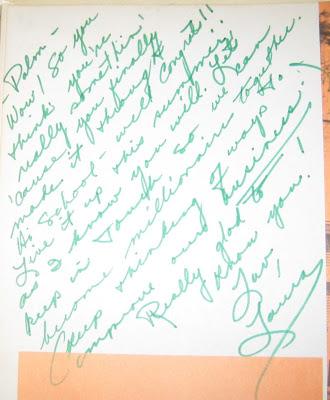 - Palm -
Wow! So you
think you're
really somethin'
'cause you finally
made it through
Hi School - well Congrats!!
Live it up this summer,
as I know you will. Let's
keep in touch so we can
become millionaires together.
(Keep thinking of ways to
improve our business.)
Really glad to
know you!
Luv,
Laura